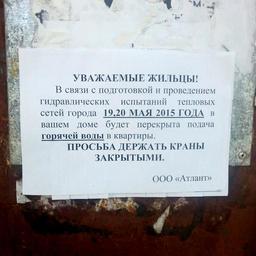 УВАЖАЕМЫЕ ЖИЛЬЦЫ!
В связи с подготовкой и проведением
гидравлических испытаний тепловых
сетей города 19,20 МАЯ 2015 ГОДА в
вашем доме будет перекрыта подача
горячей воды в квартиры.
ПРОСЬБА ДЕРЖАТЬ КРАНЫ
ЗАКРЫТЫМИ.
ООО «Атлант»